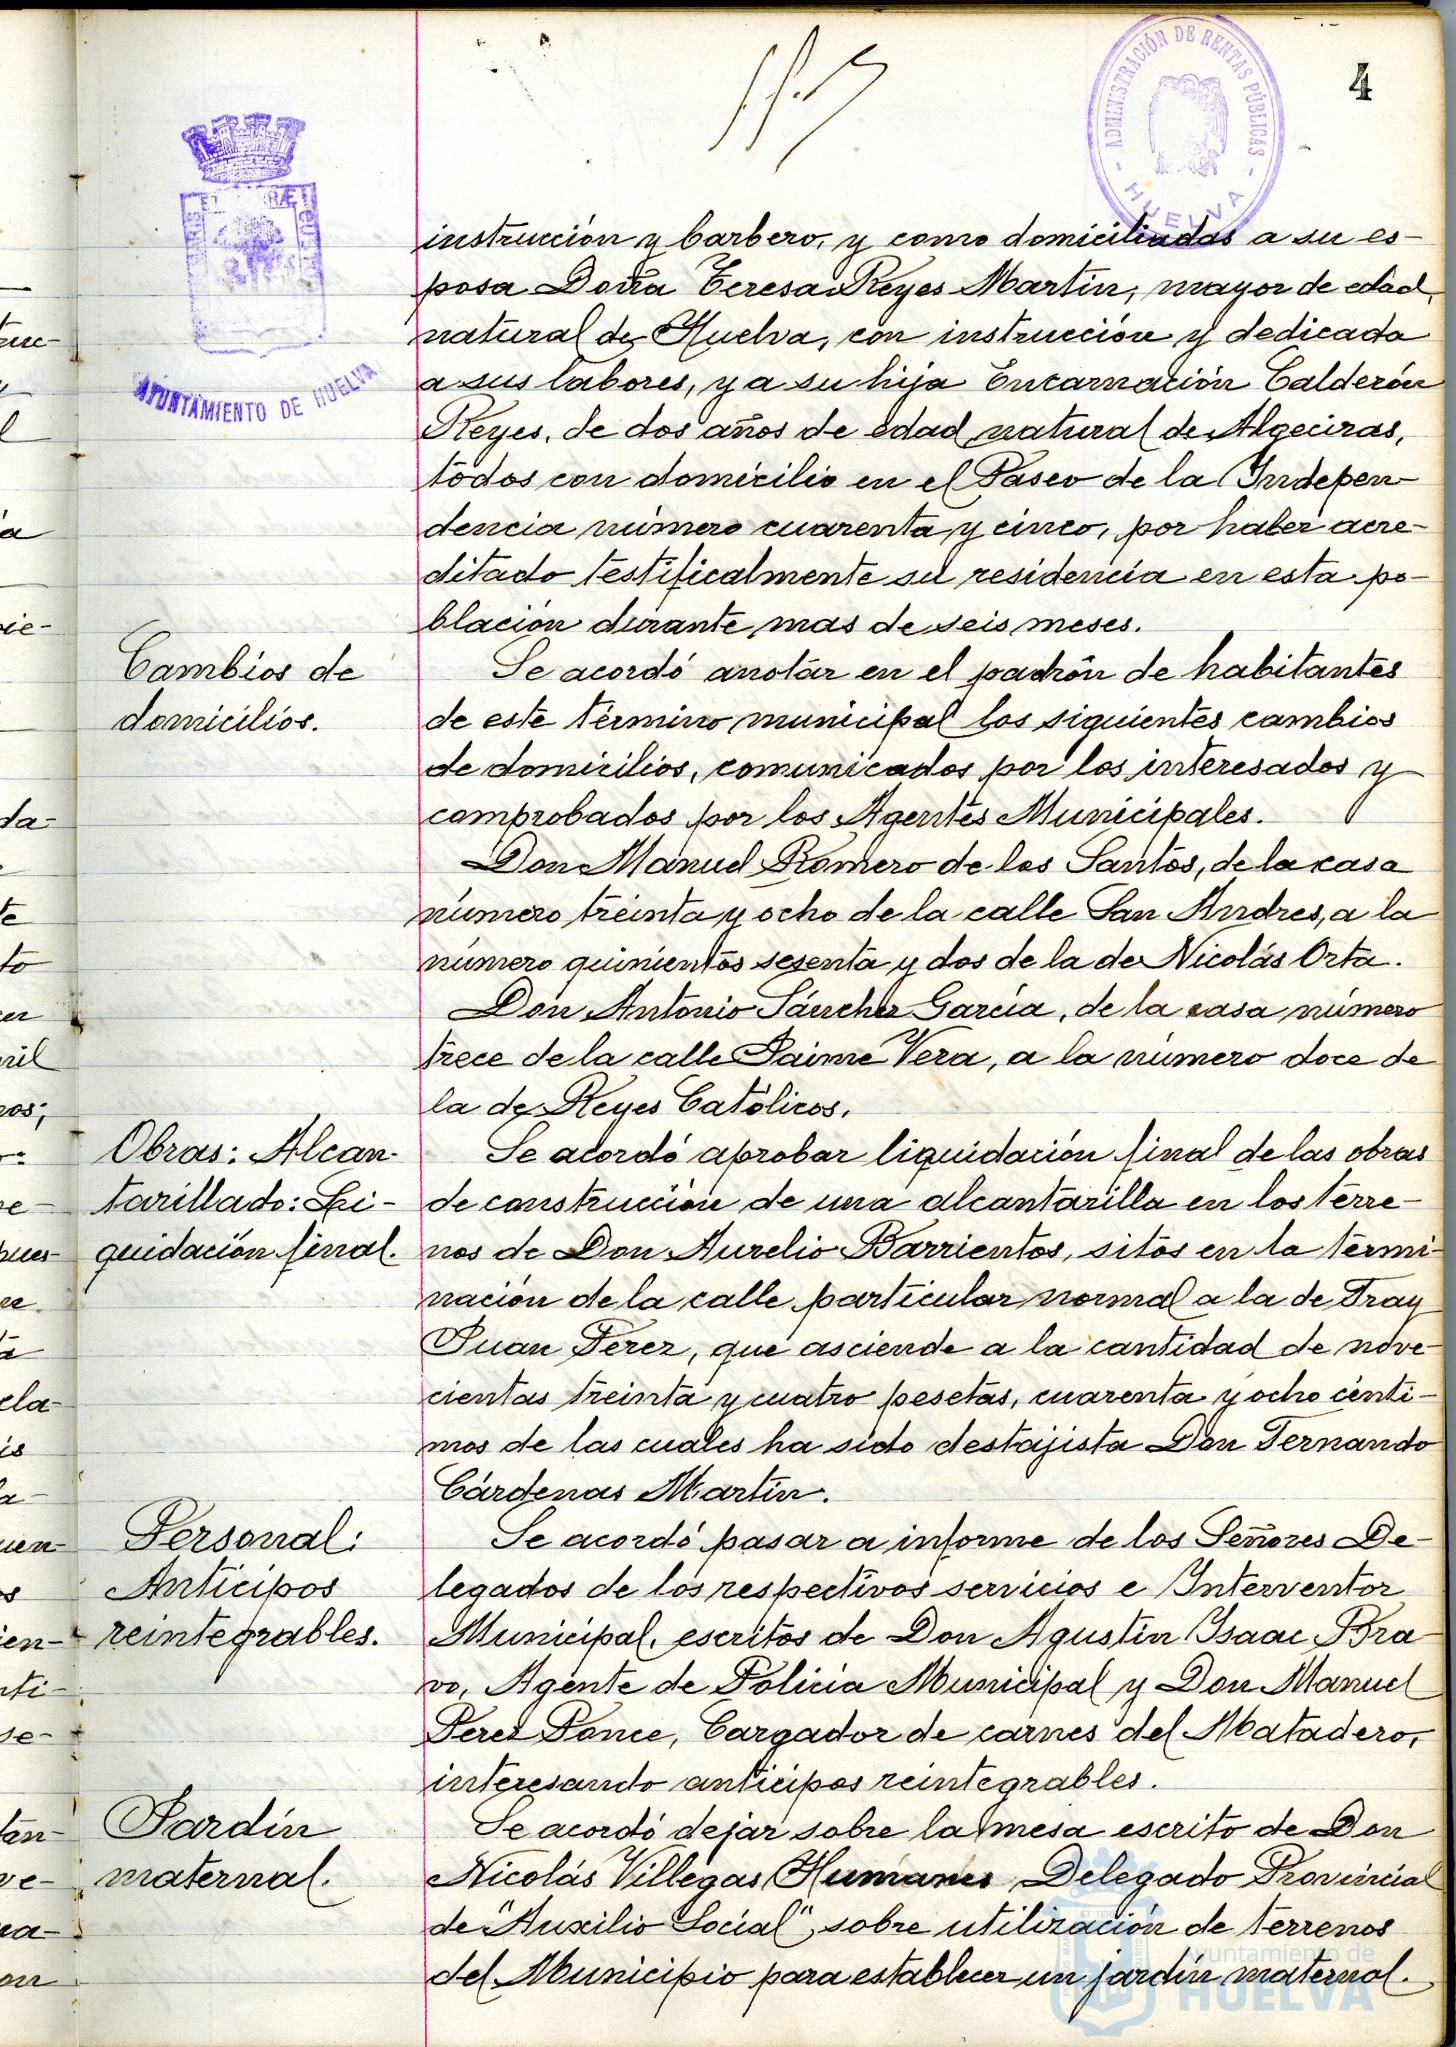 4
ADMINISTRACIÓN DE RENTAS PÚBLICAS
HUELVA
AYUNTAMIENTO DE HUELVA
instrucción y barbero, y como domiciliadas a su es-
posa Doña Teresa Reyes Martin, mayor de edad,
natural de Huelva, con instrucción y dedicada
a sus labores, y a su hija Encarnación Calderón
Reyes, de dos años de edad natural de Algeciras,
todos con domicilio en el Paseo de la Indepen-
dencia número cuarenta y cinco, por haber acre-
ditado testificalmente su residencia en esta po-
blación durante mas de seis meses.
Cambios de
domicilios.
Se acordó anotar en el padrón de habitantes
de este término municipal los siguientes cambios
de domicilios, comunicados por los interesados y
comprobados por los Agentes Municipales.
Don Manuel Romero de los Santos, de la casa
número treinta y ocho de la calle San Andres, a la
número quinientos sesenta y dos de la de Nicolás Orta.
Don Antonio Sánchez García, de la casa número
trece de la calle Jaime Vera, a la número doce de
la de Reyes Católicos.
Obras: Alcan-
tarillado: Li-
quidación final.
Se acordó aprobar liquidación final de las obras
de construcción de una alcantarilla en los terre-
nos de Don Aurelio Barrientos, sitos en la termi-
nación de la calle particular normal a la de Fray
Juan Perez, que asciende a la cantidad de nove-
cientas treinta y cuatro pesetas, cuarenta y ocho cénti-
mos de las cuales ha sido destajista Don Fernando
Cárdenas Martín.
Personal:
Anticipos
reintegrables.
Se acordó pasar a informe de los Señores De-
legados de los respectivos servicios e Interventor
Municipal, escritos de Don Agustín Isaac Bra-
vo, Agente de Policia Municipal y Don Manuel
Perez Ponce, Cargador de carnes del Matadero,
interesando anticipos reintegrables.
Jardín
maternal.
Se acordó dejar sobre la mesa escrito de Don
Nicolás Villegas Humanes Delegado Provincial
de "Auxilio Social", sobre utilización de terrenos
del Municipio para establecer un jardín maternal.
Ayuntamiento de
HUELVA